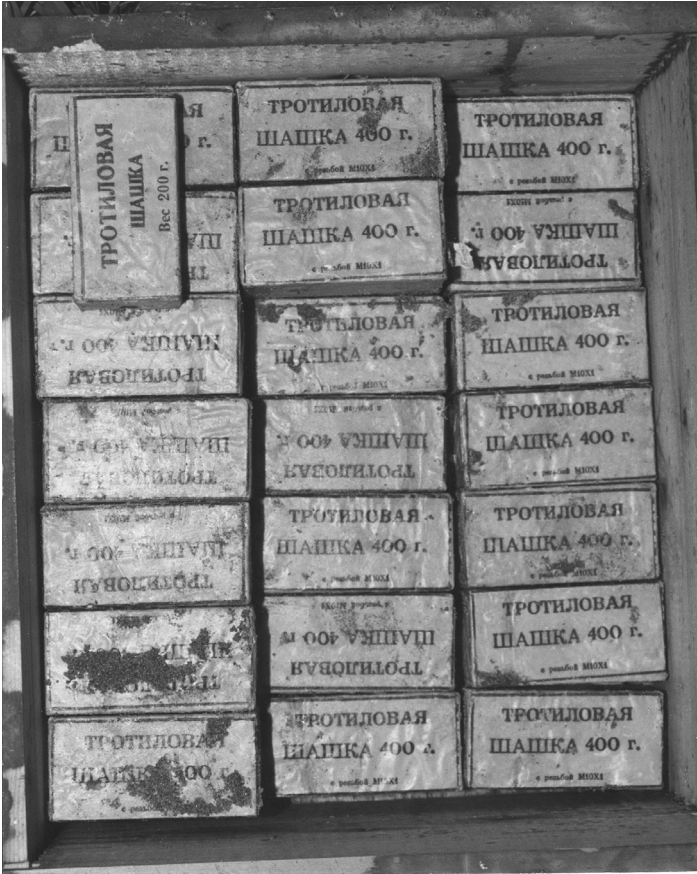 ТРОТИЛОВАЯ
ШАШКА
Вес 200 г.
АЯ
г.
ТРОТИЛОВАЯ
ШАШКА 400 г.
с резьбой М10Х1
ТРОТИЛОВАЯ
ШАШКА 400 г.
с резьбой М10Х1
ТРОТИЛОВАЯ
ШАШКА 400 г.
с резьбой М10Х1
ТРОТИЛОВАЯ
ШАШКА 400 г.
с резьбой М10Х1
ТРОТИЛОВАЯ
ШАШКА 400 г.
ТРОТИЛОВАЯ
ШАШКА 400 г.
с резьбой М10Х1
ТРОТИЛОВАЯ
ШАШКА 400 г.
с резьбой М10Х1
ТРОТИЛОВАЯ
ШАШКА 400 г.
ТРОТИЛОВАЯ
ШАШКА 400 г.
с резьбой М10Х1
ТРОТИЛОВАЯ
ШАШКА 400 г.
с резьбой М10Х1
ТРОТИЛОВАЯ
ШАШКА 400 г.
ТРОТИЛОВАЯ
ШАШКА 400 г.
с резьбой М10Х1
ТРОТИЛОВАЯ
ШАШКА 400 г.
с резьбой М10Х1
ТРОТИЛОВАЯ
ШАШКА 400 г.
с резьбой М10Х1
ТРОТИЛОВАЯ
ШАШКА 400 г.
с резьбой М10Х1
ТРОТИЛОВАЯ
ШАШКА 400 г.
ТРОТИЛОВАЯ
ШАШКА 400 г.
с резьбой М10Х1
ТРОТИЛОВАЯ
ШАШКА 400 г.
с резьбой М10Х1